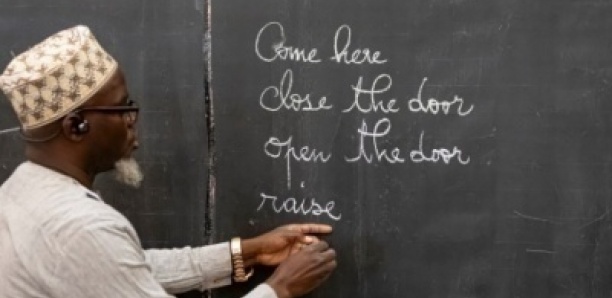 Come here
close the door
open the door
raise